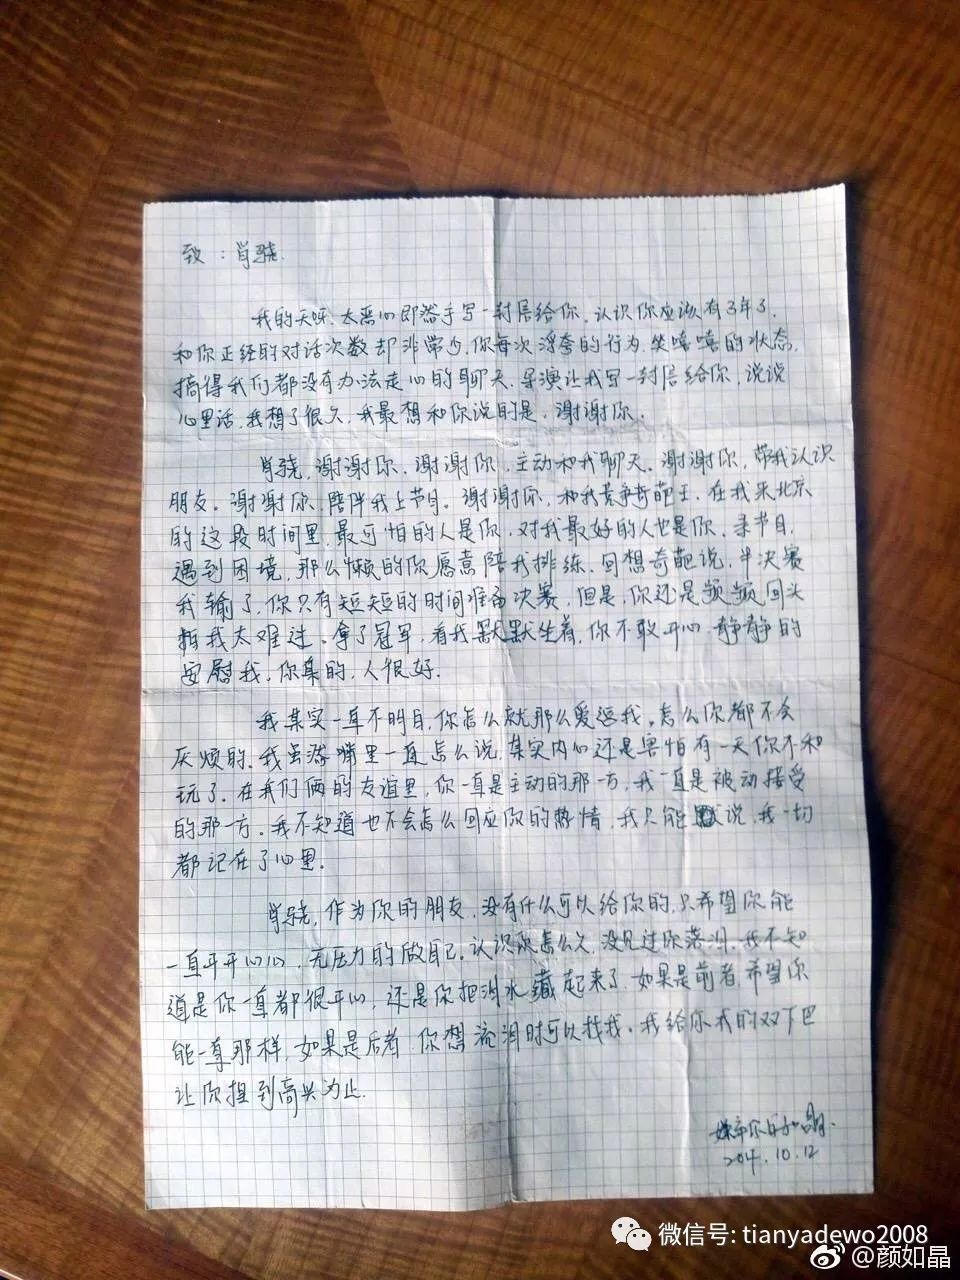 致：肖骁
我的天呀，太恶心即将手写一封信给你，认识你应该有3年了，
和你正经的对话次数却非常少，你每次浮夸的行为，笑嘻嘻的状态，
搞得我们都没有办法走心的聊天，导演让我写一封信给你，说说
心里话，我想了很久，我最想和你说的是，谢谢你，
肖骁，谢谢你，谢谢你，主动和我聊天。谢谢你，带我认识
朋友。谢谢你，陪伴我上节目。谢谢你，和我竞争奇葩王，在我来北京
的这段时间里，最可怕的人是你，对我最好的人也是你，录节目，
遇到困境，那么懒的你愿意陪我排练，回想奇葩说，半决赛
我输了，你只有短短的时间准备决赛，但是，你还是频频回头
我太难过。拿了冠军，看我默默坐着，你不敢开心，静静的
安慰我，你真的，人很好，
我其实一直不明白，你怎么就那么爱逗我，怎么你都不会
厌烦的，我虽然嘴里一直怎么说，其实内心还是害怕有一天你不和
玩了。在我们俩的友谊里，你一直是主动的那一方，我一直是被动接受
的那一方。我不知道也不会怎么回应你的热情，我只能说，我一切
都记在了心里。
肖骁，作为你的朋友，没有什么可以给你的，只希望你能
一直开开心心，无压力的做自己。认识你怎么久，没见过你落泪，我不知
道是你一直都很开心，还是你把泪水藏起来了，如果是前者，希望你
能一直那样，如果是后者，你想流泪时可以找我。我给你我的双下巴
让你捏到高兴为止。
你的如晶
10.12
微信号: tianyadewo2008
@颜如晶